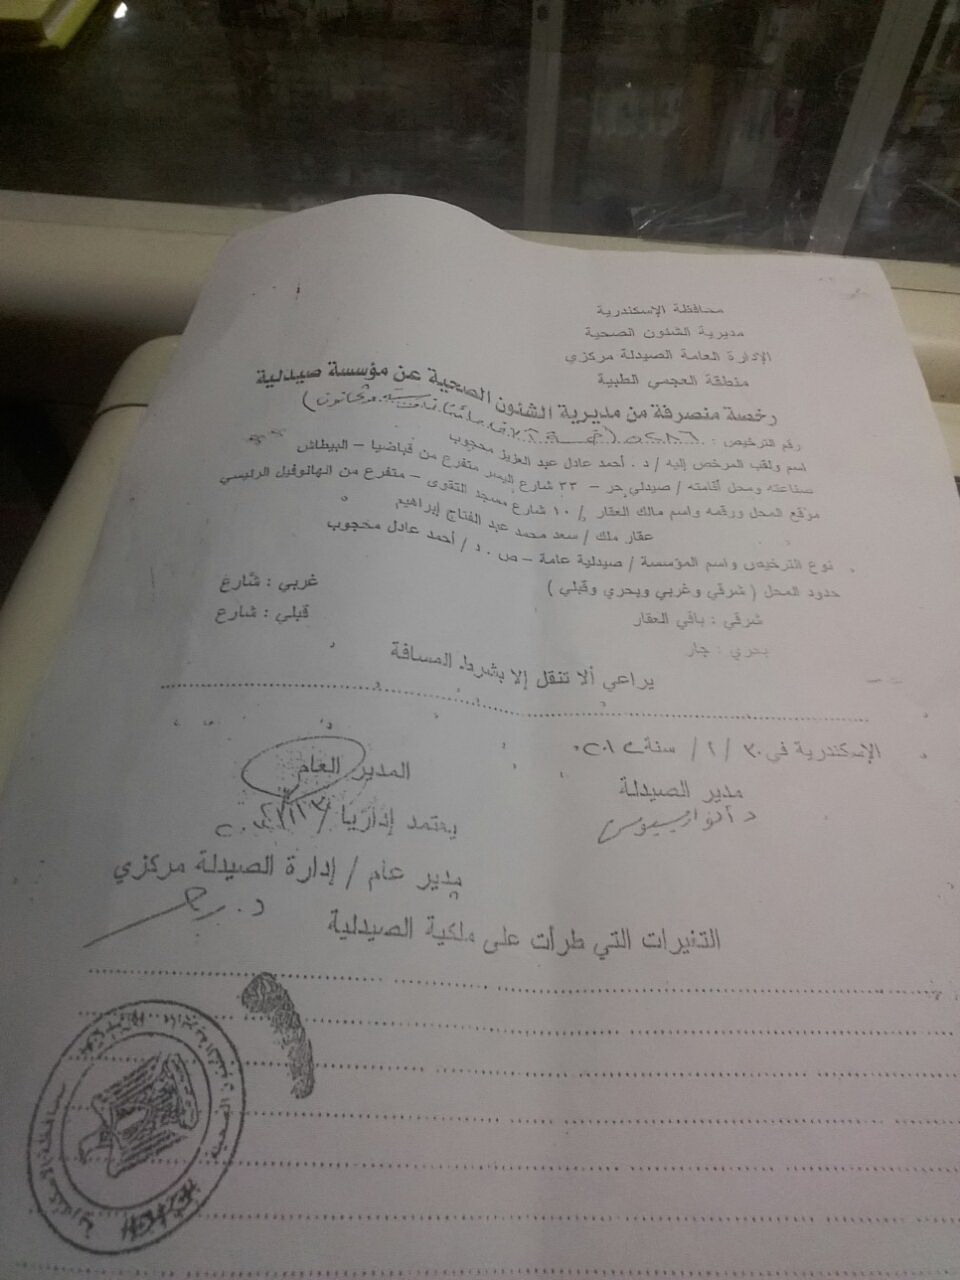 محافظة الإسكندرية
مديرية الشئون الصحية
الإدارة العامة الصيدلة مركزي
منطقة العجمي الطبية
رخصة منصرفة من مديرية الشئون الصحية عن مؤسسة صيدلية
رقم الترخيص :
اسم ولقب المرخص إليه / د . أحمد عادل عبد العزيز محجوب
صناعته ومحل أقامته / صيدلي حر - ٣٣ شارع اليسر متفرع من قباضيا - البيطاش
موقع المحل ورقمه واسم مالك العقار / ١٠ شارع مسجد التقوى - متفرع من الهانوفيل الرئيسي
عقار ملك / سعد محمد عبد الفتاح إبراهيم
نوع الترخيص واسم المؤسسة / صيدلية عامة - ص . د / أحمد عادل محجوب
حدود المحل ( شرقي وغربي وبحري وقبلي )
غربي : شارع
شرقي : باقي العقار
قبلي : شارع
بحري : جار
يراعي ألا تنقل إلا بشرط المسافة
الإسكندرية في ٣٠ / ٢ / سنة
مدير الصيدلة
المدير العام
يعتمد إداريا
مدير عام / إدارة الصيدلة مركزي
التغيرات التي طرأت على ملكية الصيدلية